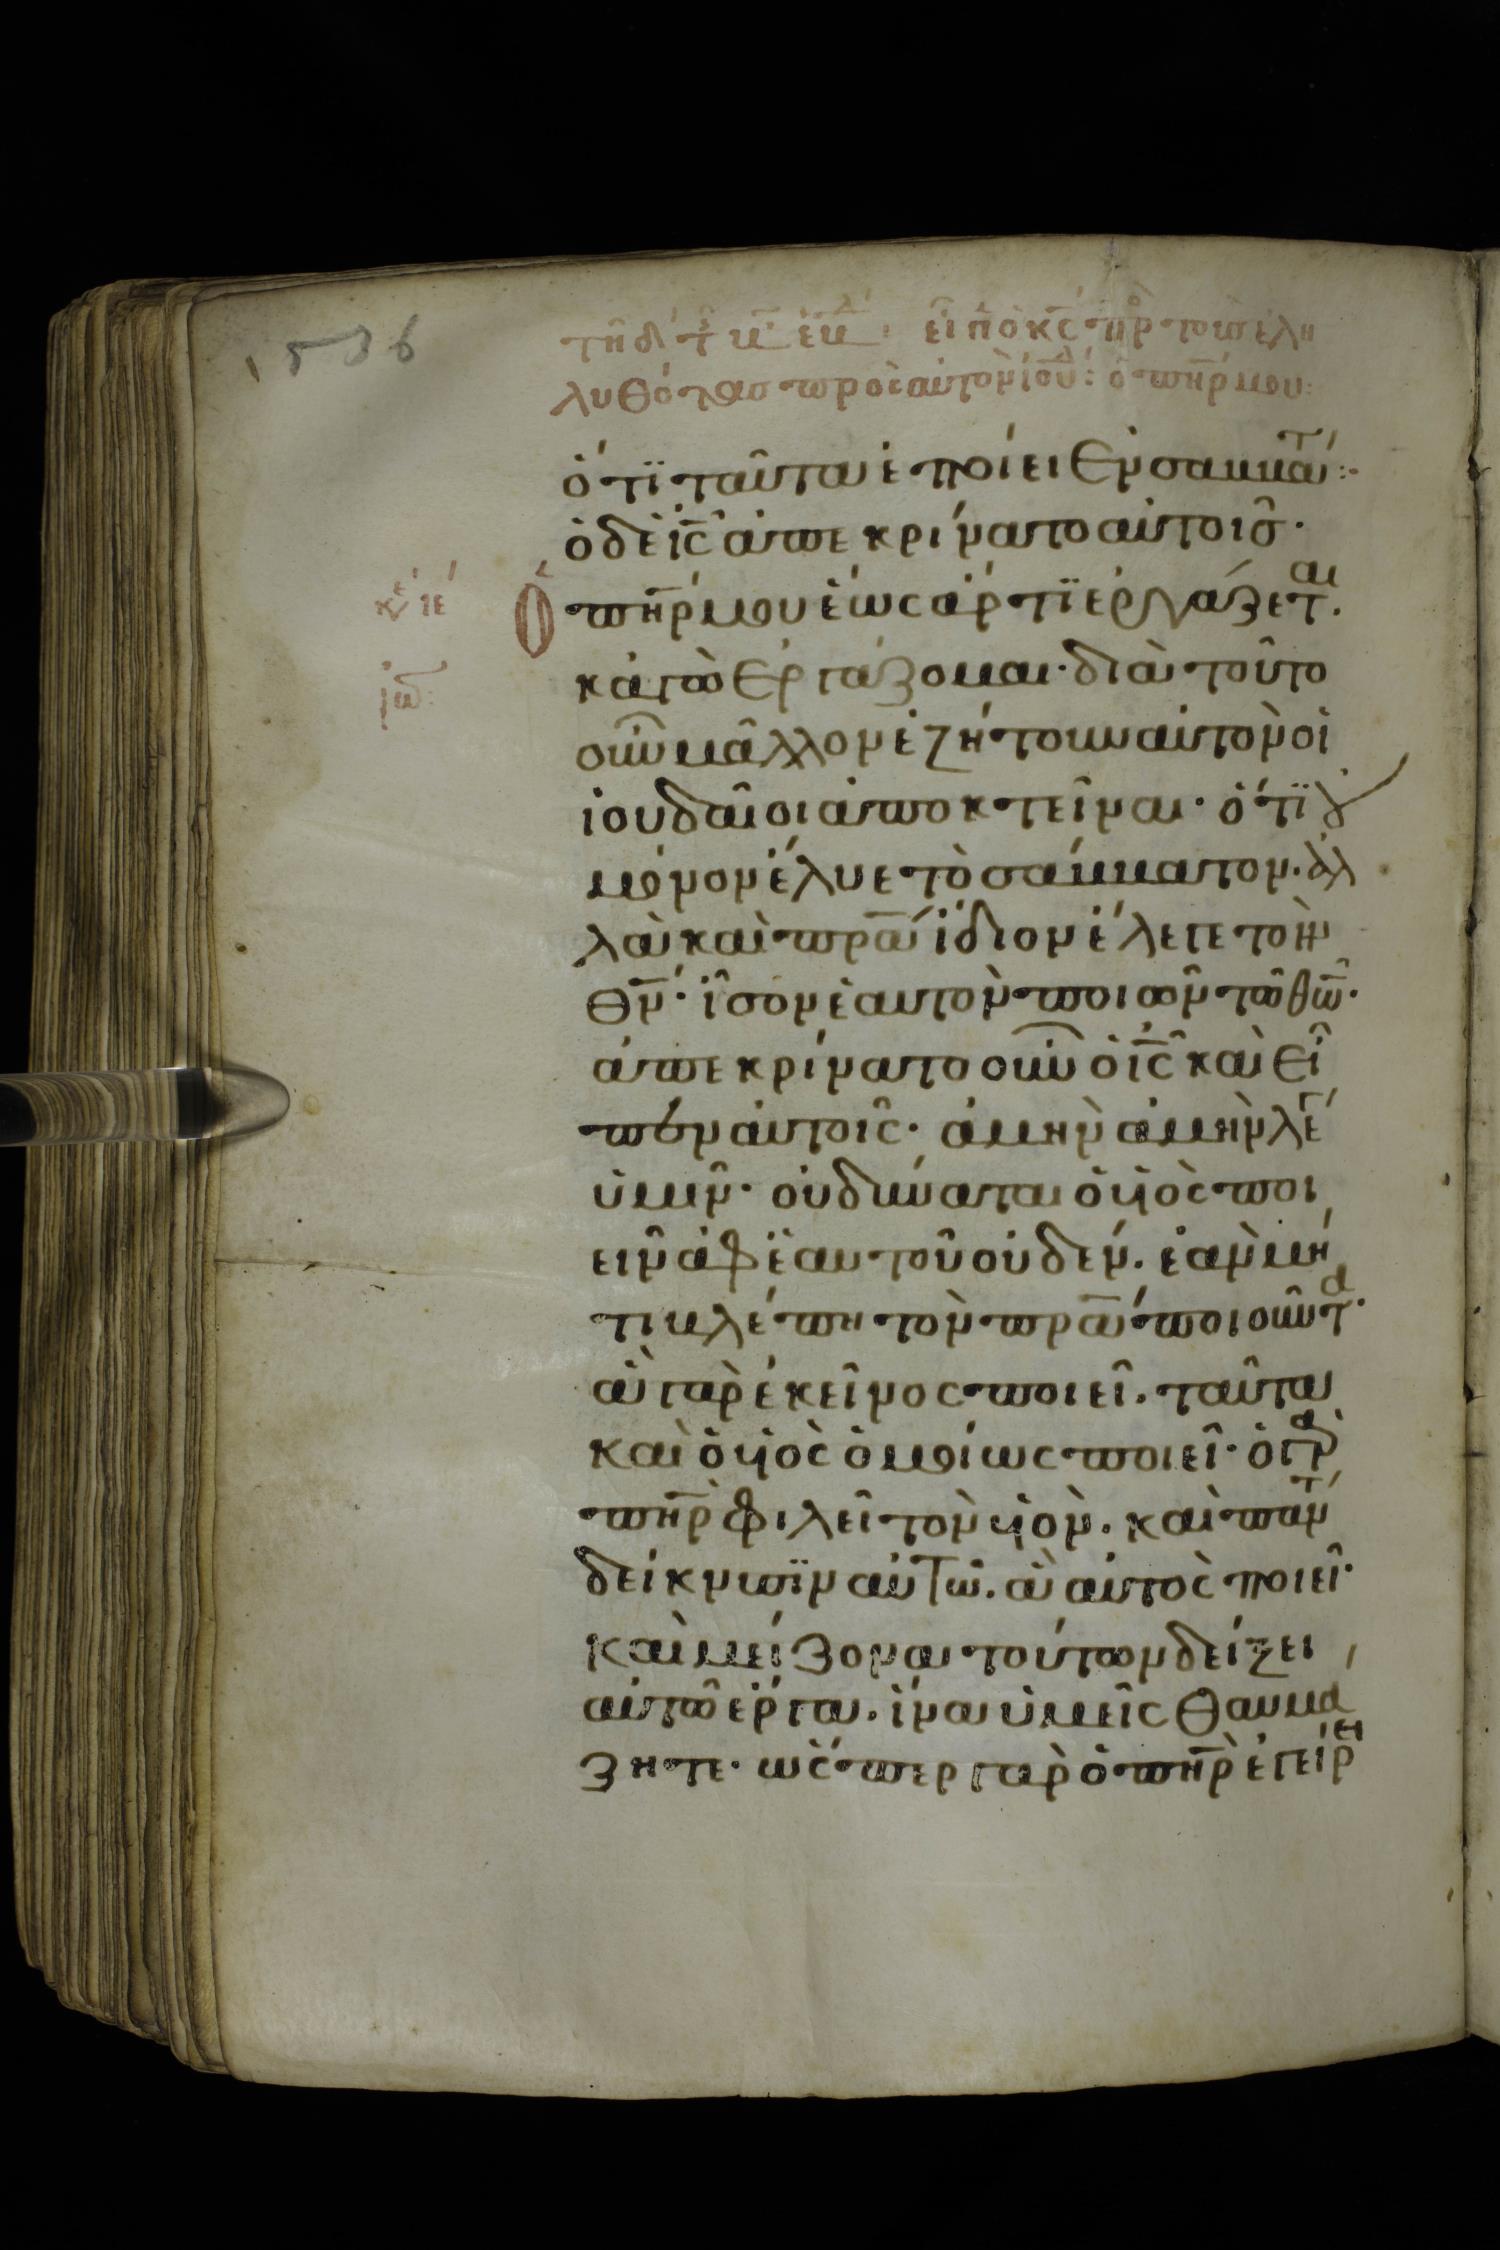 1536
τῆ δ τ β εβ : εἶπ ὁ κς πρ τοὺς ἐλη
λυθότας πρὸς αὐτὸν ἰουδ : ὁ πηρ μου :
ὅτϊ ταῦτα ἐποίει ἐν σαββατ :
ὁ δὲ ις ἀπεκρίνατο αὐτοῖς ·
κε ιε
Ὁ πηρ μου ἕως ἄρτϊ ἐργάζεται .
ιω :
κἀγὼ ἐργάζομαι · διὰ τοῦτο
οὖν μᾶλλον ἐζήτουν αὐτὸν οἱ
ἰουδαῖοι ἀποκτεῖναι · ὅτϊ οὐ
μόνον ἔλυε τὸ σάββατον · ἀλ
λὰ καὶ πρα ἴδιον ἔλεγε τὸν
θν · ἶσον ἑαυτὸν ποιῶν τῶ θω ·
ἀπεκρίνατο οὖν ὁ ις καὶ εἶ
πεν αὐτοῖς · ἀμὴν ἀμὴν λέγ
ὑμῖν · οὐ δύναται ὁ υἱὸς ποι
εῖν ἀφ ἑαυτοῦ οὐδέν . ἐὰν μή
τι βλέπη τὸν πρα ποιοῦντα ·
ἃ γὰρ ἐκεῖνος ποιεῖ . ταῦτα
καὶ ὁ υἱὸς ὁμοίως ποιεῖ · ὁ γὰρ
πηρ φιλεῖ τὸν υἱὸν . καὶ πάντ
δείκνυσϊν αὐτῶ . ἃ αὐτὸς ποιεῖ ·
καὶ μείζονα τούτων δείξει
αὐτῶ ἔργα . ἵνα ὑμεῖς θαυμά
ζητε · ὥσπερ γὰρ ὁ πηρ ἐγείρει